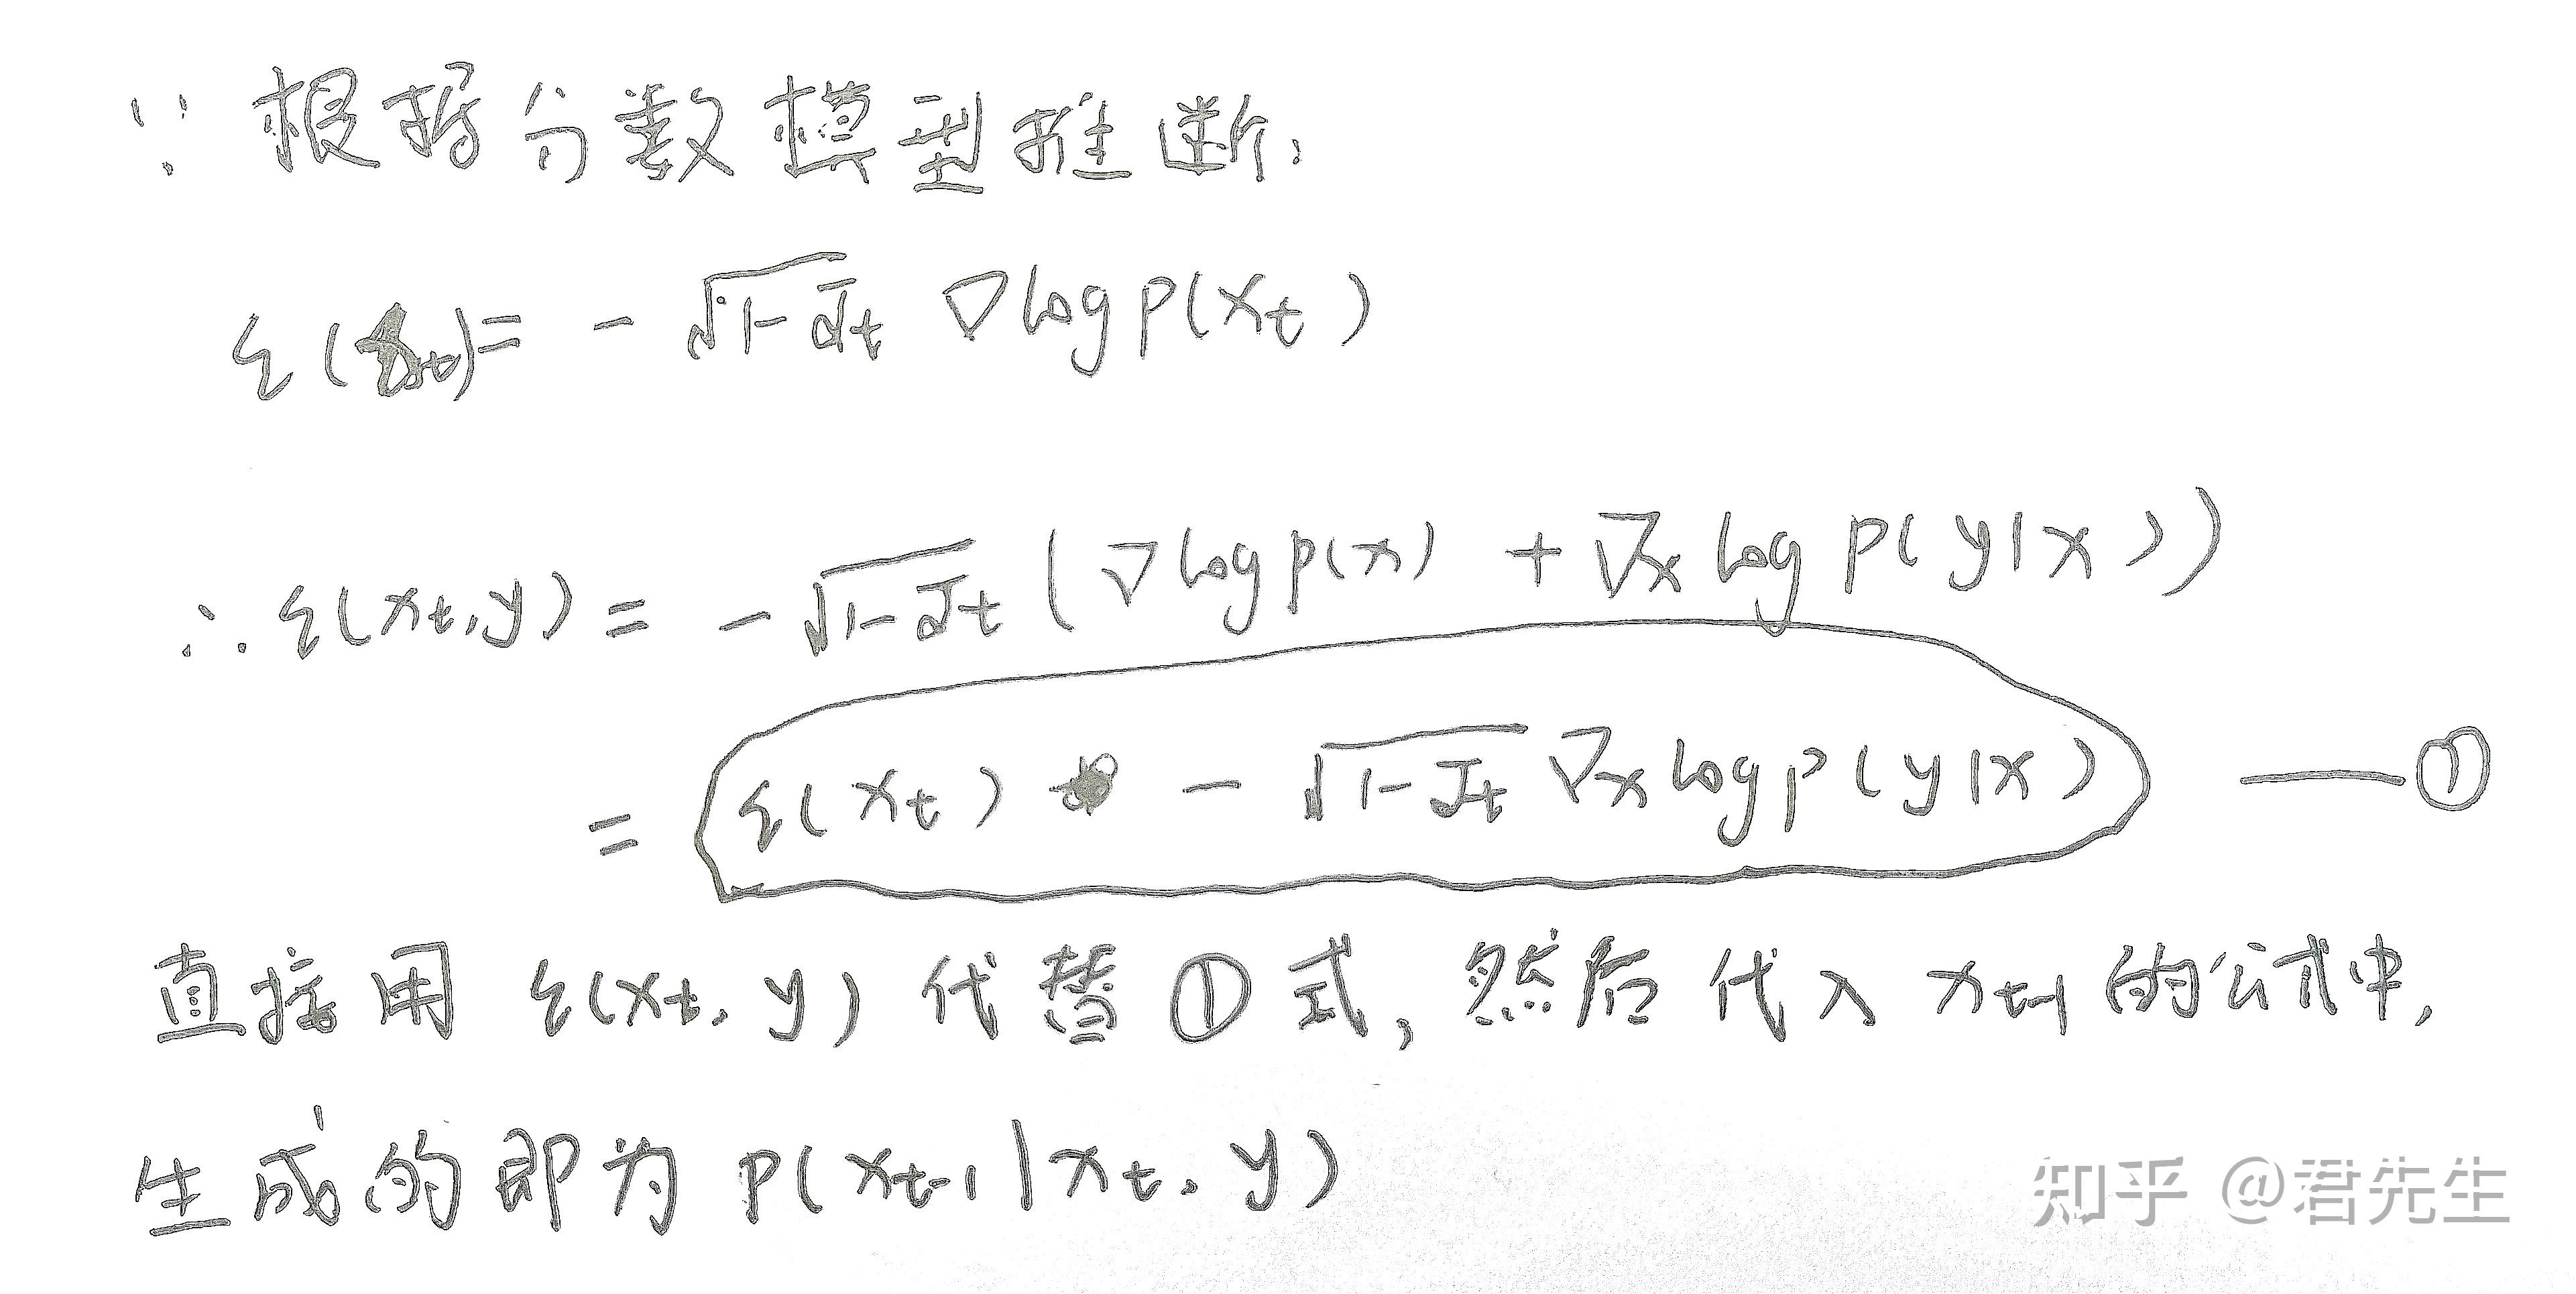 ∵ 根据分数模型推断:
ε(xₜ) = - √(1-ᾱₜ) ∇log p(xₜ)
∴ ε(xₜ,y) = -√(1-ᾱₜ) (∇log p(x) + ∇ₓ log p(y|x))
= ε(xₜ) - √(1-ᾱₜ) ∇ₓ log p(y|x) —— ①
直接用 ε(xₜ,y) 代替 ① 式, 然后代入 xₜ₋₁ 的公式中,
生成的即为 p(xₜ₋₁|xₜ,y)
知乎 @君先生